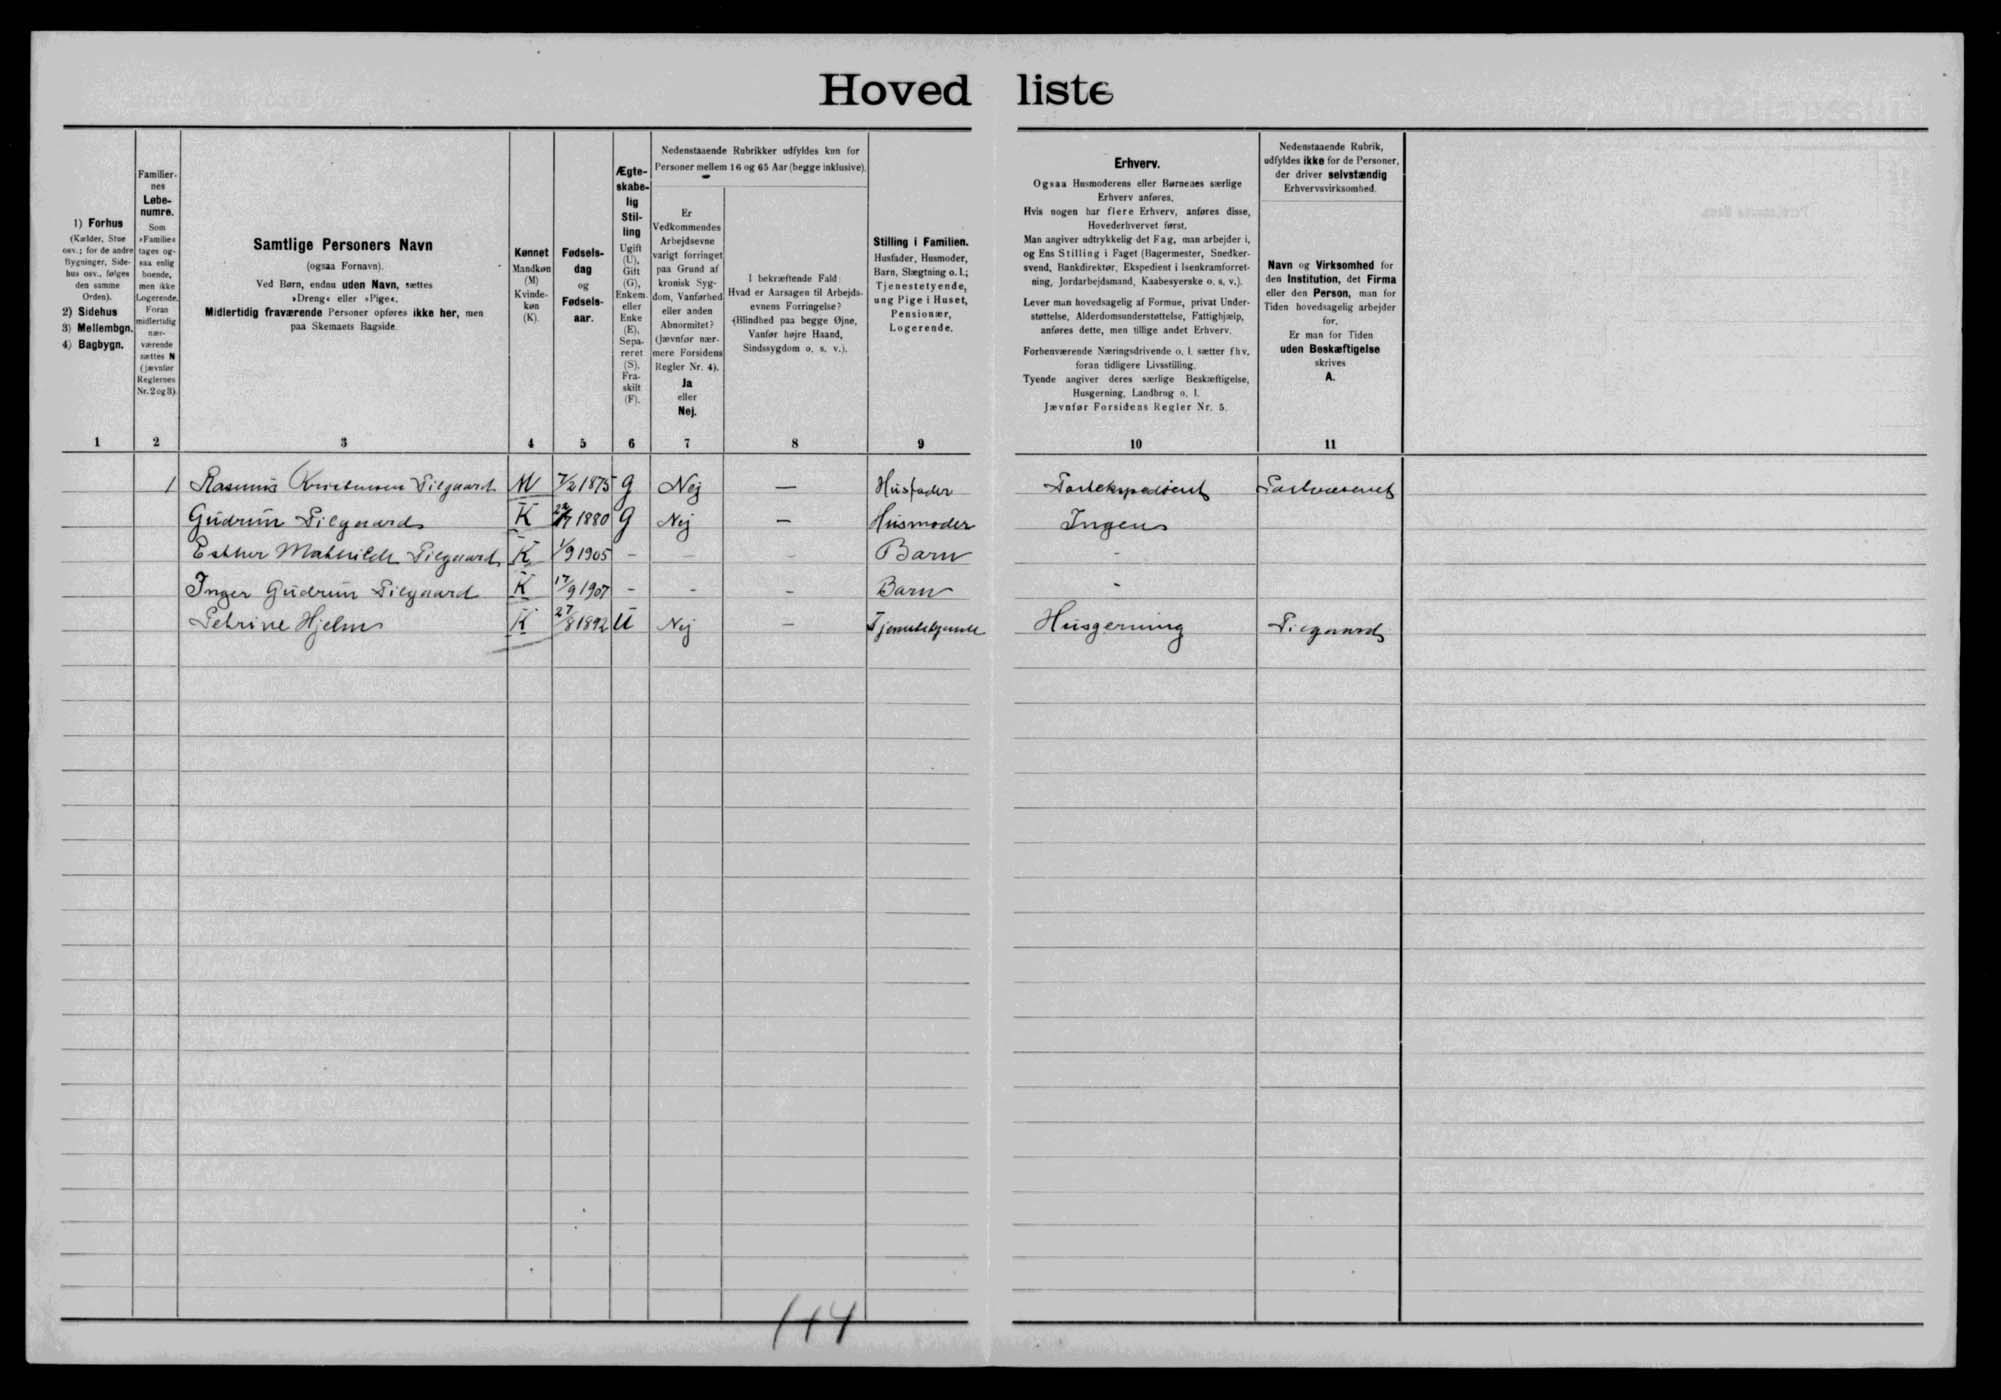 Hoved liste
1) Forhus
(Kælder, Stue
osv.; for de andre
Bygninger, Side-
hus osv., følges
den samme
Orden).
2) Sidehus
3) Mellembgn.
4) Bagbygn.
1
Familier-
nes
Løbe-
numre.
Som
»Familie«
tages og-
saa enlig
boende,
men ikke
Logerende.
Foran
midlertidig
nær-
værende
sættes N
(jævnfør
Reglernes
Nr. 2 og 3)
2
Samtlige Personers Navn
(ogsaa Fornavn).
Ved Børn, endnu uden Navn, sættes
»Dreng« eller »Pige«.
Midlertidig fraværende Personer opføres ikke her, men
paa Skemaets Bagside.
3
Kønnet
Mandkøn
(M)
Kvinde-
køn
(K).
4
Fødsels-
dag
og
Fødsels-
aar.
5
Ægte-
skabe-
lig
Stil-
ling
Ugift
(U),
Gift
(G),
Enkem.
eller
Enke
(E),
Sepa-
reret
(S),
Fra-
skilt
(F).
6
Nedenstaaende Rubrikker udfyldes kun for
Personer mellem 16 og 65 Aar (begge inklusive).
Er
Vedkommendes
Arbejdsevne
varigt forringet
paa Grund af
kronisk Syg-
dom, Vanførhed
eller anden
Abnormitet?
(Jævnfør nær-
mere Forsidens
Regler Nr. 4).
Ja
eller
Nej.
7
I bekræftende Fald:
Hvad er Aarsagen til Arbejds-
evnens Forringelse?
(Blindhed paa begge Øjne,
Vanfør højre Haand,
Sindssygdom o. s. v.).
8
Stilling i Familien.
Husfader, Husmoder,
Barn, Slægtning o. l.;
Tjenestetyende,
ung Pige i Huset,
Pensionær,
Logerende.
9
Erhverv.
Ogsaa Husmoderens eller Børnenes særlige
Erhverv anføres.
Hvis nogen har flere Erhverv, anføres disse,
Hovederhvervet først.
Man angiver udtrykkelig det Fag, man arbejder i,
og Ens Stilling i Faget (Bagermester, Snedker-
svend, Bankdirektør, Ekspedient i Isenkramforret-
ning, Jordarbejdsmand, Kaabesyerske o. s. v.).
Lever man hovedsagelig af Formue, privat Under-
støttelse, Alderdomsunderstøttelse, Fattighjælp,
anføres dette, men tillige andet Erhverv.
Forhenværende Næringsdrivende o. l. sætter fhv.
foran tidligere Livsstilling.
Tyende angiver deres særlige Beskæftigelse,
Husgerning, Landbrug o. l.
Jævnfør Forsidens Regler Nr. 5.
10
Nedenstaaende Rubrik,
udfyldes ikke for de Personer,
der driver selvstændig
Erhvervsvirksomhed.
Navn og Virksomhed for
den Institution, det Firma
eller den Person, man for
Tiden hovedsagelig arbejder
for.
Er man for Tiden
uden Beskæftigelse
skrives
A.
11
1 Rasmus Kristensen Pilgaard M 7/2 1875 G Nej — Husfader Postekspedient Postvæsenet
Gudrun Pilgaard K 1880 G Nej — Husmoder Ingen
Esther Mathilde Pilgaard K 1/9 1905 - - - Barn -
Inger Gudrun Pilgaard K 17/9 1907 - - - Barn -
Petrine Hjelm K 27/8 1892 U Nej — Tjenestetyende Husgerning Pilgaard
144